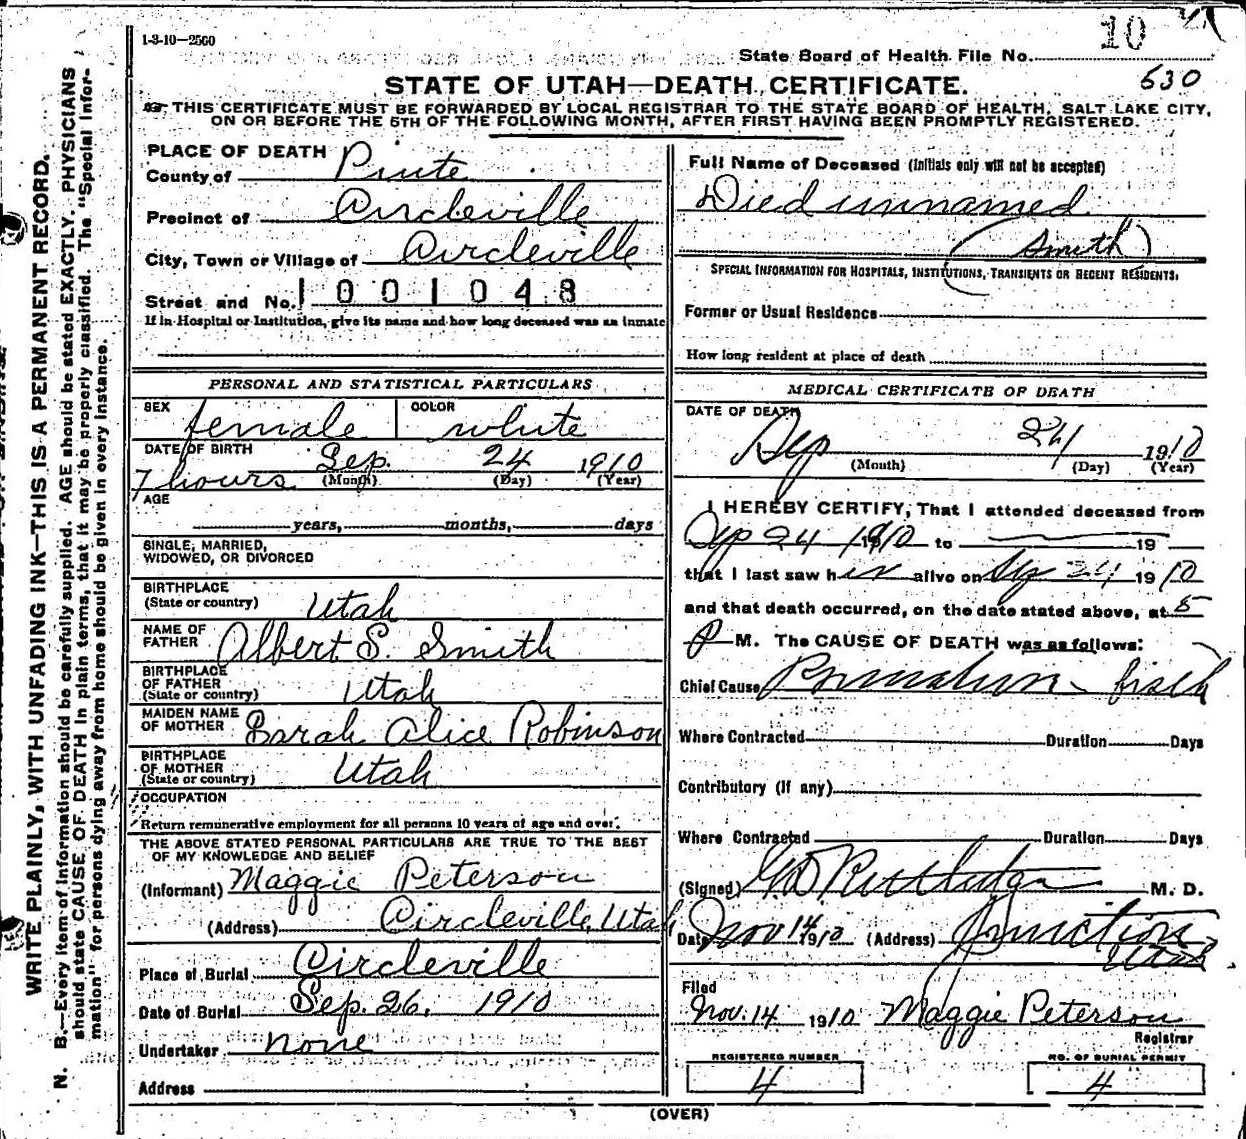 1-3-10—2500
10
State Board of Health File No.
STATE OF UTAH—DEATH CERTIFICATE.
530
THIS CERTIFICATE MUST BE FORWARDED BY LOCAL REGISTRAR TO THE STATE BOARD OF HEALTH, SALT LAKE CITY,
ON OR BEFORE THE 5TH OF THE FOLLOWING MONTH, AFTER FIRST HAVING BEEN PROMPTLY REGISTERED.
WRITE PLAINLY, WITH UNFADING INK—THIS IS A PERMANENT RECORD.
N. B.—Every item of information should be carefully supplied. AGE should be stated EXACTLY. PHYSICIANS
should state CAUSE OF DEATH in plain terms, that it may be properly classified. The "Special Infor-
mation" for persons dying away from home should be given in every instance.
PLACE OF DEATH
County of Piute
Precinct of Circleville
City, Town or Village of Circleville
Street and No. 1001048
If in Hospital or Institution, give its name and how long deceased was an inmate
PERSONAL AND STATISTICAL PARTICULARS
SEX female COLOR white
DATE OF BIRTH Sep. 24 1910
7 hours (Month) (Day) (Year)
AGE
years, months, days
SINGLE, MARRIED,
WIDOWED, OR DIVORCED
BIRTHPLACE
(State or country) Utah
NAME OF
FATHER Albert S. Smith
BIRTHPLACE
OF FATHER
(State or country) Utah
MAIDEN NAME
OF MOTHER Sarah Alice Robinson
BIRTHPLACE
OF MOTHER
(State or country) Utah
OCCUPATION
Return remunerative employment for all persons 10 years of age and over.
THE ABOVE STATED PERSONAL PARTICULARS ARE TRUE TO THE BEST
OF MY KNOWLEDGE AND BELIEF
(Informant) Maggie Peterson
(Address) Circleville, Utah
Place of Burial Circleville
Date of Burial Sep. 26, 1910
Undertaker none
Address
Full Name of Deceased (Initials only will not be accepted)
Died unnamed
(Smith)
SPECIAL INFORMATION FOR HOSPITALS, INSTITUTIONS, TRANSIENTS OR RECENT RESIDENTS.
Former or Usual Residence
How long resident at place of death
MEDICAL CERTIFICATE OF DEATH
DATE OF DEATH
Sep 24 1910
(Month) (Day) (Year)
I HEREBY CERTIFY, That I attended deceased from
Sep 24 1910 to 19
that I last saw her alive on Sep 24 1910
and that death occurred, on the date stated above, at 5
P M. The CAUSE OF DEATH was as follows:
Chief Cause
Where Contracted Duration Days
Contributory (If any)
Where Contracted Duration Days
(Signed) M. D.
Date Nov 14 1910 (Address) Junction
Utah
Filed
Nov. 14 1910 Maggie Peterson
Registrar
REGISTERED NUMBER
4
NO. OF BURIAL PERMIT
4
(OVER)